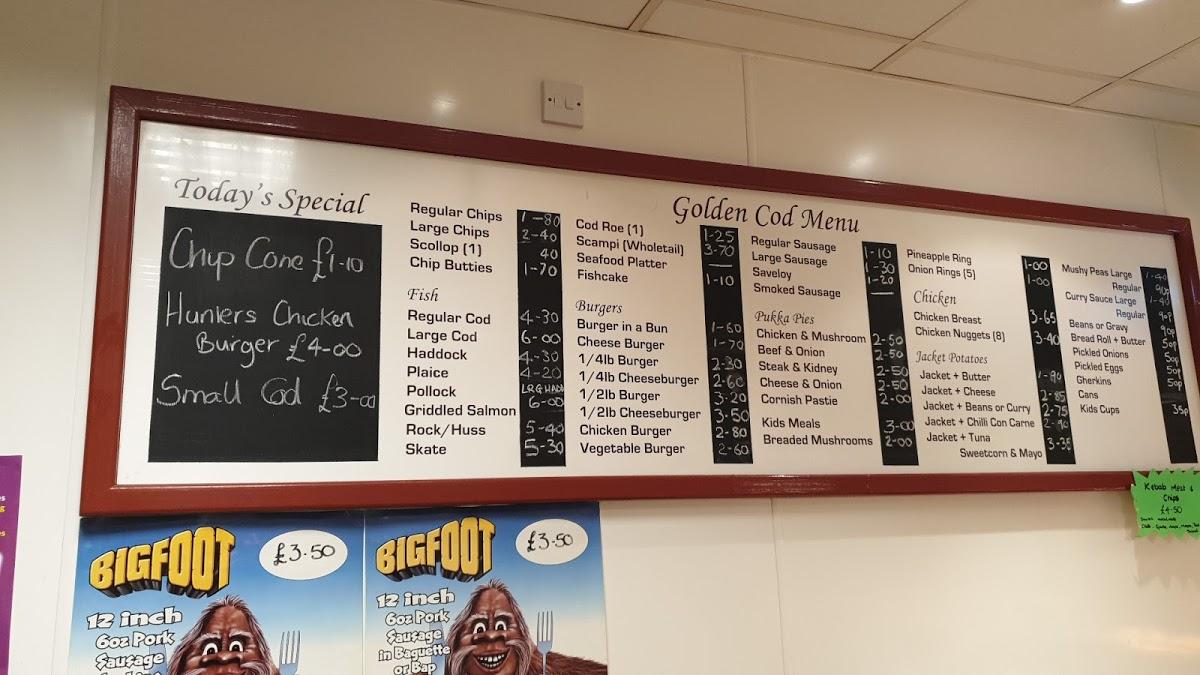 Today's Special
Chip Cone £1-10
Hunters Chicken
Burger £4-00
Small Cod £3-00
Golden Cod Menu
Regular Chips 1-80
Large Chips 2-40
Scollop (1) 40
Chip Butties 1-70
Fish
Regular Cod 4-30
Large Cod 6-00
Haddock 4-30
Plaice 4-20
Pollock LRG HADD
Griddled Salmon 6-00
Rock/Huss 5-40
Skate 5-30
Cod Roe (1) 1-25
Scampi (Wholetail) 3-70
Seafood Platter —
Fishcake 1-10
Burgers
Burger in a Bun 1-60
Cheese Burger 1-70
1/4lb Burger 2-30
1/4lb Cheeseburger 2-60
1/2lb Burger 3-20
1/2lb Cheeseburger 3-50
Chicken Burger 2-80
Vegetable Burger 2-60
Regular Sausage 1-10
Large Sausage 1-30
Saveloy 1-20
Smoked Sausage —
Pukka Pies
Chicken & Mushroom 2-50
Beef & Onion 2-50
Steak & Kidney 2-50
Cheese & Onion 2-50
Cornish Pastie 2-00
Kids Meals 3-00
Breaded Mushrooms 2-00
Pineapple Ring 1-00
Onion Rings (5) 1-00
Chicken
Chicken Breast 3-65
Chicken Nuggets (8) 3-40
Jacket Potatoes
Jacket + Butter 1-90
Jacket + Cheese 2-85
Jacket + Beans or Curry 2-75
Jacket + Chilli Con Carne 2-90
Jacket + Tuna 3-35
Sweetcorn & Mayo
Mushy Peas Large 1-40
Regular 90p
Curry Sauce Large 1-40
Regular 90p
Beans or Gravy 90p
Bread Roll + Butter 50p
Pickled Onions 50p
Pickled Eggs 50p
Gherkins 50p
Cans
Kids Cups 35p
Kebab Meat &
Chips
£4-50
BIGFOOT
£3.50
12 inch
6oz Pork
Sausage
BIGFOOT
£3.50
12 inch
6oz Pork
Sausage
in Baguette
or Bap